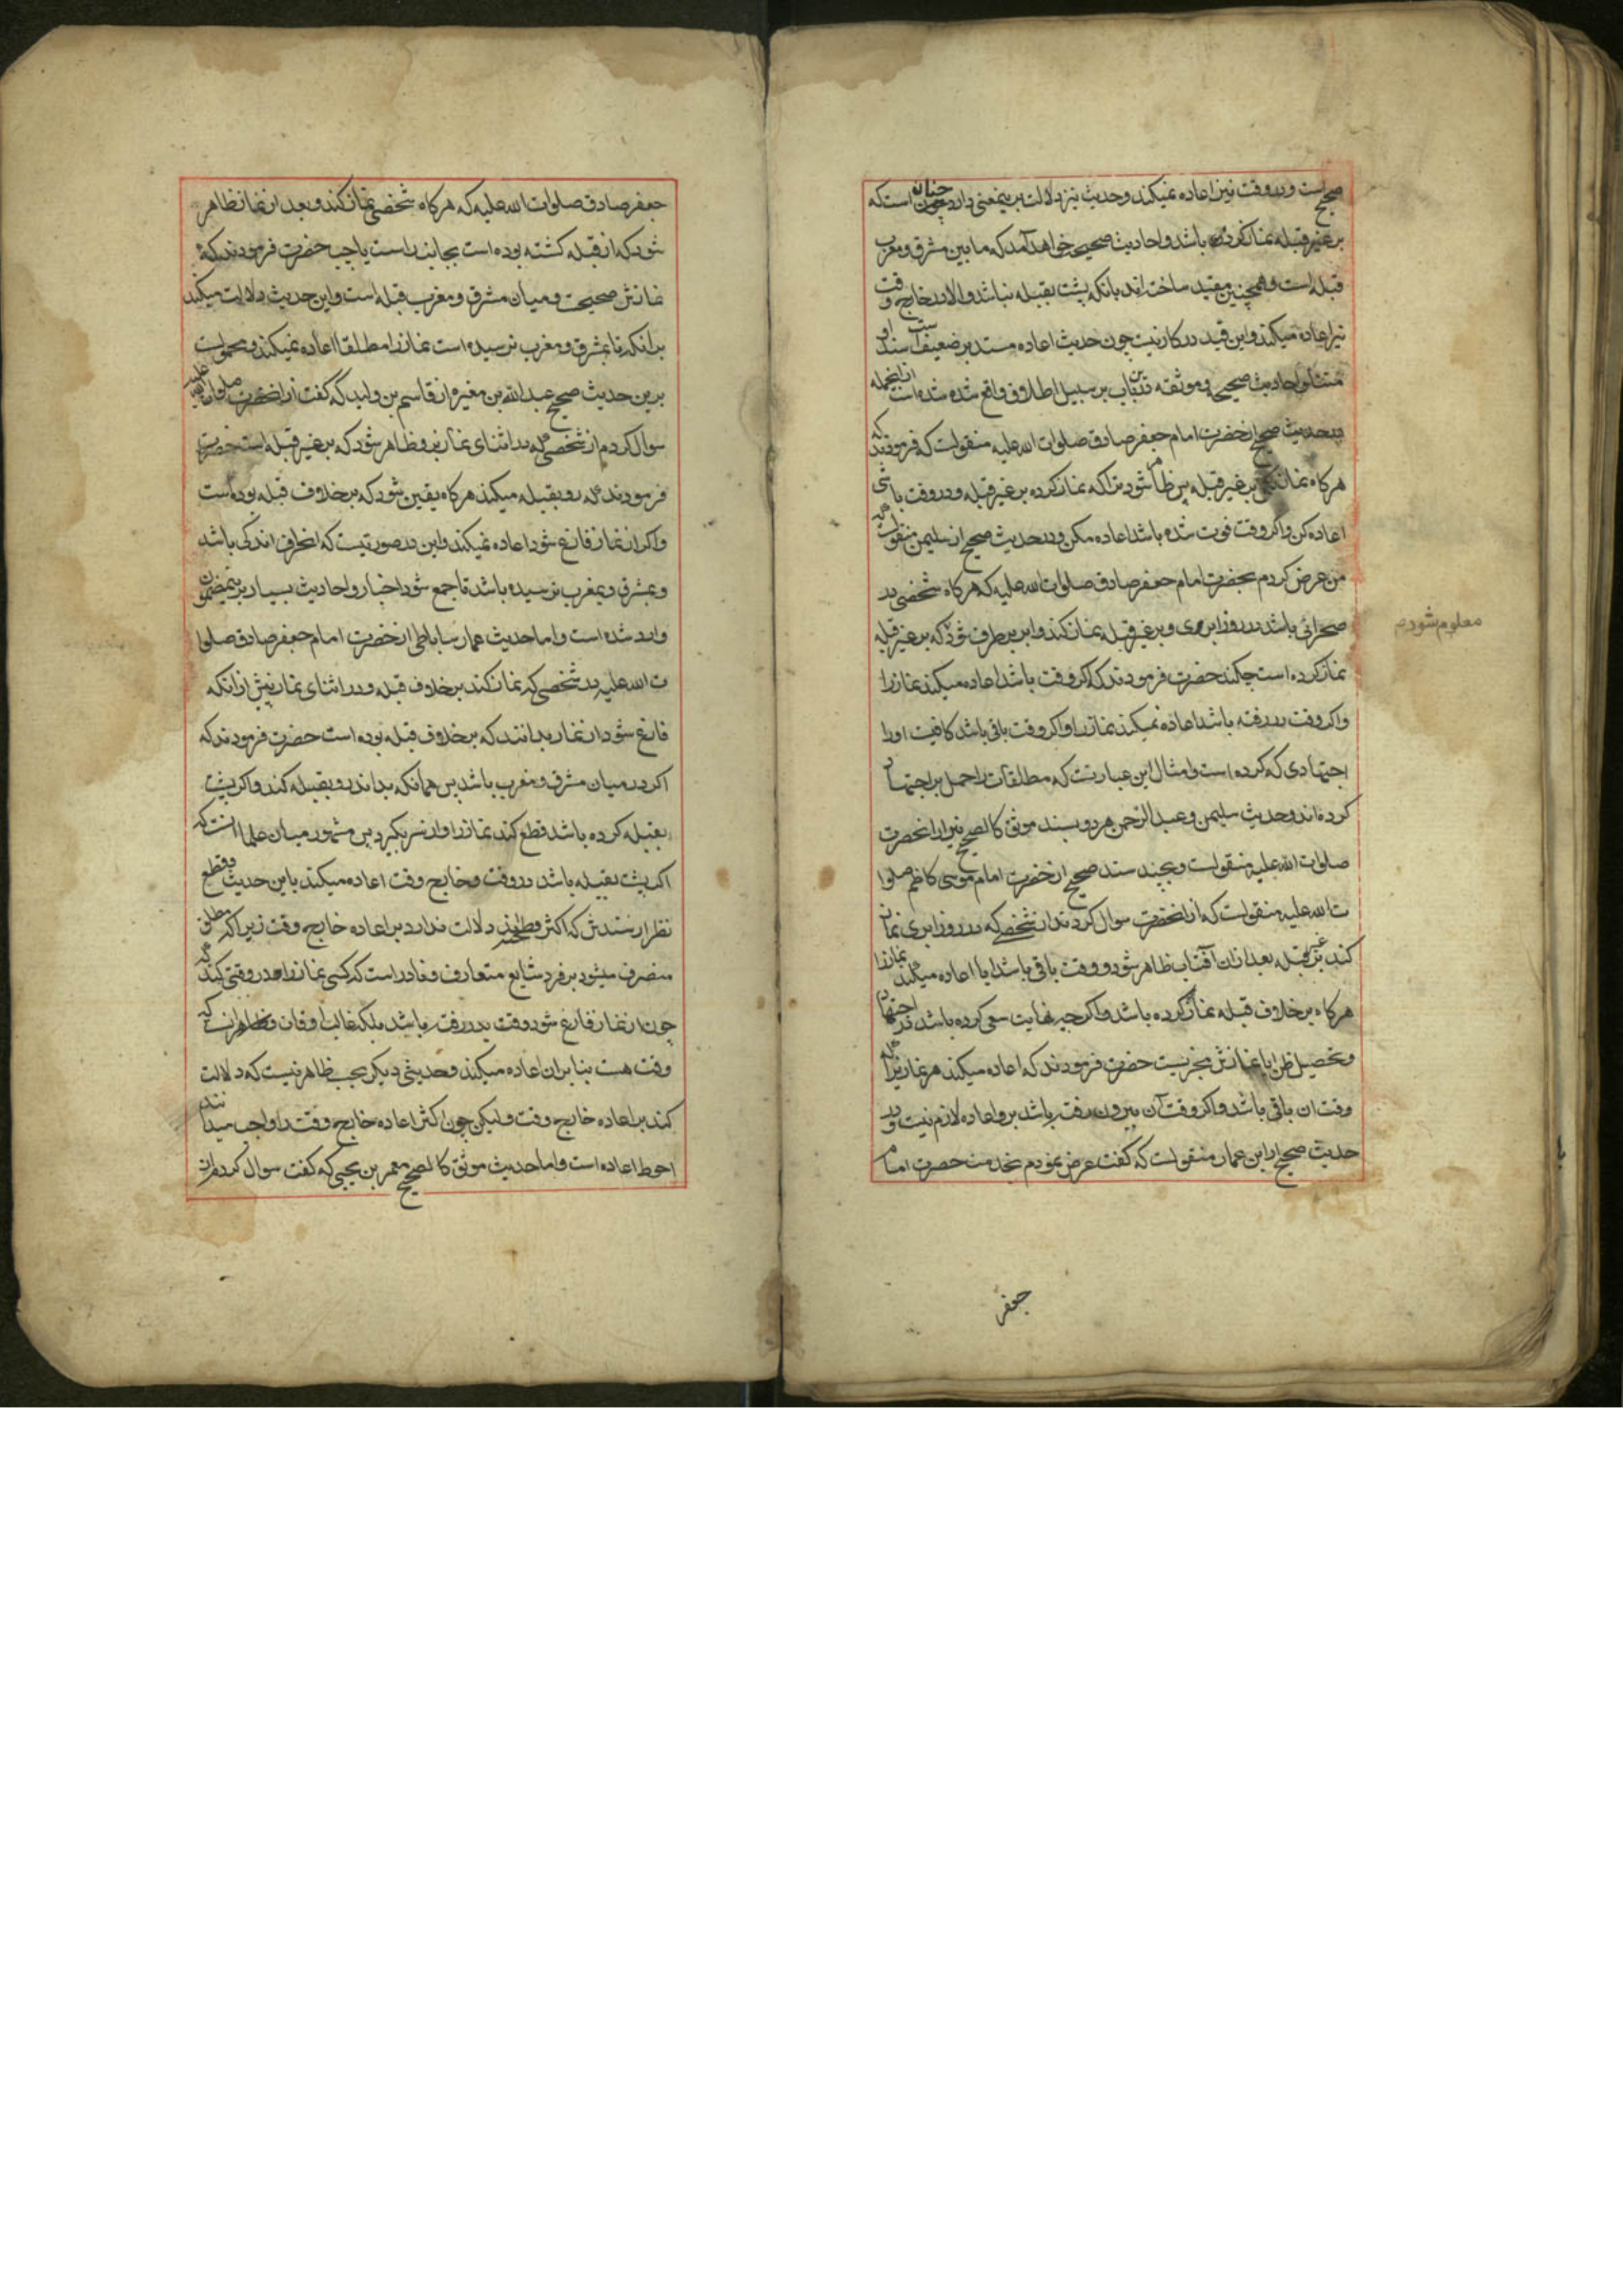 صحیح است و در وقت نیز اعاده نمیکند و حدیث نیز دلالت برینمعنی دارد چنان است که
بر غیر قبله نماز کرده باشد و احادیث صحیحه خواهد آمد که ما بین مشرق و مغرب
قبله است و همچنین مقید ساخته‌اند بانکه پشت بقبله نباشد و الا در خارج وقت
نیز اعاده میکند و این قید در کار نیست چون حدیث اعاده مستند بر ضعیف است سند او
احادیث صحیحه و موثقه درین باب بر سبیل اطلاق واقع شده شده است از انجمله
در حدیث صحیح از حضرت امام جعفر صادق صلوات الله علیه منقولست که فرمودند که
هرکاه نماز کنی بر غیر قبله پس ظاهر شود بتو که نماز کرده بر غیر قبله و در وقت باشی
اعاده کن و اکر وقت فوت شده باشد اعاده مکن و در حدیث صحیح از سلیمن منقولست که
من عرض کردم بحضرت امام جعفر صادق صلوات الله علیه که هرکاه شخصی در
صحرائی باشد در روز ابری و بر غیر قبله نماز کند و ابر بر طرف شود که بر غیر قبله
نماز کرده است چکند حضرت فرمودند که اکر وقت باشد اعاده میکند نماز را
و اکر وقت در رفته باشد اعاده نمیکند نماز را و اکر وقت باقی باشد کافیست او را
اجتهادی که کرده است و امثال این عبارتست که مطلقات را حمل بر اجتهاد
کرده‌اند و حدیث سلیمن و عبد الرحمن هر دو بسند موثق کالصحیح نیز از انحضرت
صلوات الله علیه منقولست و بچند سند صحیح از حضرت امام موسی کاظم صلوا
ت الله علیه منقولست که از انحضرت سوال کردند از شخصی که در روز ابری نماز
کند بر غیر قبله بعد از ان آفتاب ظاهر شود و وقت باقی باشد ایا اعاده میکند نماز را
هرکاه بر خلاف قبله نماز کرده باشد و اکر چه نهایت سعی کرده باشد در اجتهاد
و تحصیل ظن یا نمازش مجزیست حضرت فرمودند که اعاده میکند هر نماز یرا که
وقت ان باقی باشد و اکر وقت آن بیرون رفته باشد برو اعاده لازم نیست و در
حدیث صحیح از ابن عمار منقولست که گفت عرض نمودم بخدمت حضرت امام
معلوم شود م
جعفر
جعفر صادق صلوات الله علیه که هرکاه شخصی نماز کند و بعد از نماز ظاهر
شود که از قبله کشته بوده است بجانب راست یا چپ حضرت فرمودند که
نمازش صحیحست و میان مشرق و مغرب قبله است و این حدیث دلالت میکند
برانکه تا بمشرق و مغرب نرسیده است نماز را مطلقا اعاده نمیکند و محمولست
برین حدیث صحیح عبد الله بن مغیره از قاسم بن ولید که گفت از انحضرت صلوات الله علیه
سوال کردم از شخصی که در اثنای نماز برو ظاهر شود که بر غیر قبله است حضرت
فرمودند که رو بقبله میکند هرکاه یقین شود که بر خلاف قبله بوده است
و اکر از نماز فارغ شود اعاده نمیکند و این در صورتیست که انحراف اندکی باشد
و بمشرق و بمغرب نرسیده باشد تا جمع شود اخبار و احادیث بسیار برینمضمون
وارد شده است و اما حدیث عمار ساباطی از حضرت امام جعفر صادق صلوا
ت الله علیه در شخصی که نماز کند بر خلاف قبله و در اثنای نماز پیش از انکه
فارغ شود از نماز بدانند که بر خلاف قبله بوده است حضرت فرمودند که
اکر در میان مشرق و مغرب باشد پس همانکه بداند رو بقبله کند و اکر پشت
بقبله کرده باشد قطع کند نماز را و از سر بکیرد پس مشهور میان علما انست که
اکر پشت بقبله باشد در وقت و خارج وقت اعاده میکند باین حدیث و قطع
نظر از سندش که اکثر فطحیند دلالت ندارد بر اعاده خارج وقت زیرا که مطلق
منصرف میشود بر فرد شایع متعارف و نادر است که کسی نماز را در وقتی کند که
چون از نماز فارغ شود وقت بدر رفته باشد بلکه غالب اوقات و ظاهر انست که
وقت هست بنا بران اعاده میکند و حدیثی دیکر بحسب ظاهر نیست که دلالت
کند بر اعاده خارج وقت و لیکن چون اکثر اعاده خارج وقت را واجب میدانند
احوط اعاده است و اما حدیث موثق کالصحیح معمر بن یحیی که گفت سوال کردم از